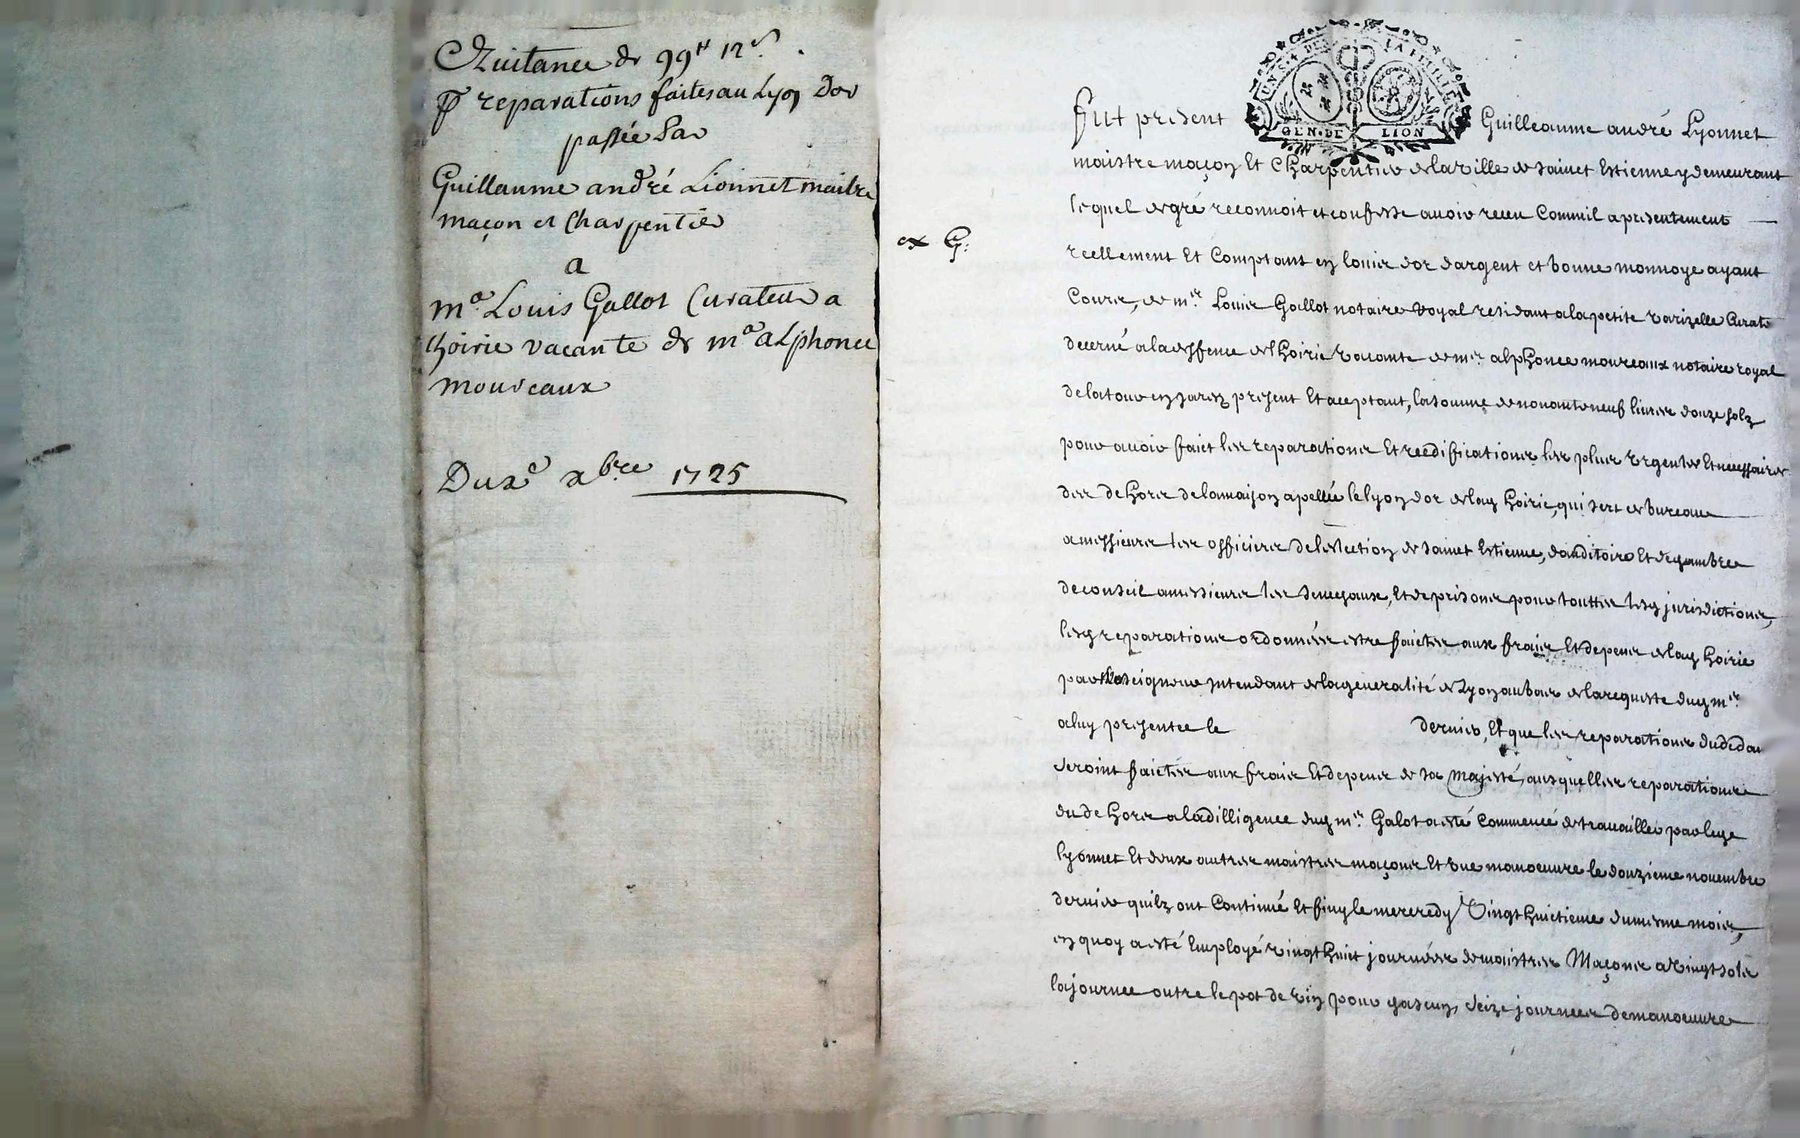 Quitance de 99# 12s.
p reparations faites au Lyon Dor
passée Par
Guillaume andré Lionnet maitre
maçon et Charpentier
a
me. Louis Gallot Curateur a
Lhoirie vacante de me alphonce
moureaux
Du xe xbre 1725
UN S. 4 DEN. LA FEUILLE
GEN. DE LION
Fut present Guilleaume andré Lyonnet
maistre maçon Et Charpentier de la ville de Sainct Estienne y demeurant
lequel de gré reconnoit et confesse avoir receu Comme il a presentement
reellement Et Comptant en louis dor dargent et bonne monnoye ayant
Cours, de mer. Louis Gallot notaire Royal residant a la petite varizelle Curate
decerné a la deffence de lhoirie vacante de mer. alphonce moureaux notaire royal
de la tour en Jarez present Et aceptant, la somme de nonante neuf livres douze solz
pour avoir faict les reparations Et reedifications les plus urgentes Et necessaires
des dehors de la maison apellée le lyon dor de lad hoirie, qui sert de bureau
a messieurs les officiers de lelection de Sainct Estienne, dauditoire Et de chambre
de conseil a messieurs les Senechaux, Et de prisons pour touttes lesd jurisdictions,
lesd reparations ordonnées estre faictes aux frais Et depens de lad hoirie
par Monseigneur Intendant de la generalité de Lyon au bas de la requeste dud mer.
a luy presentee le dernier, Et que les reparations du dedan
seroint faictes aux frais Et depens de Sa Majesté, ausquelles reparations
du dehors a la dilligence dud mer. Galot a esté Commencé de travailler par ledt
lyonnet Et deux autres maistres maçons Et une manoeuvre le douzieme novembre
dernier quilz ont Continué Et finy le mercredy Vingt huictieme du mesme mois,
en quoy a esté Employé vingt huict journées de maistres Maçons a vingt sols
la journee outre le pot de vin pour chascun, Seize journees de manoeuvre
ex G: